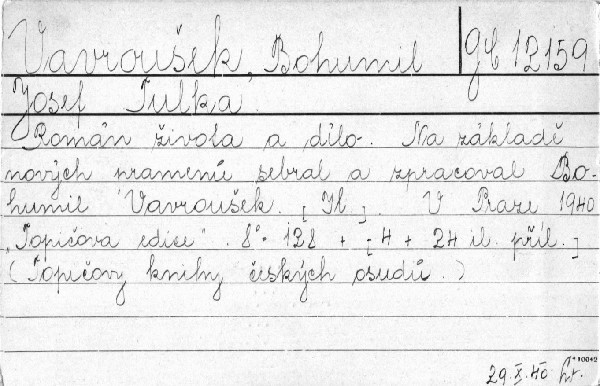 Vavroušek, Bohumil gE 12159
Josef Tulka.
Román života a dílo. Na základě
nových pramenů sebral a zpracoval Bo-
humil Vavroušek. [Il.]. V Praze 1940
„Topičova edice". 8°. 128 + [4 + 24 il. příl.]
(Topičovy knihy českých osudů.)
29.X.40